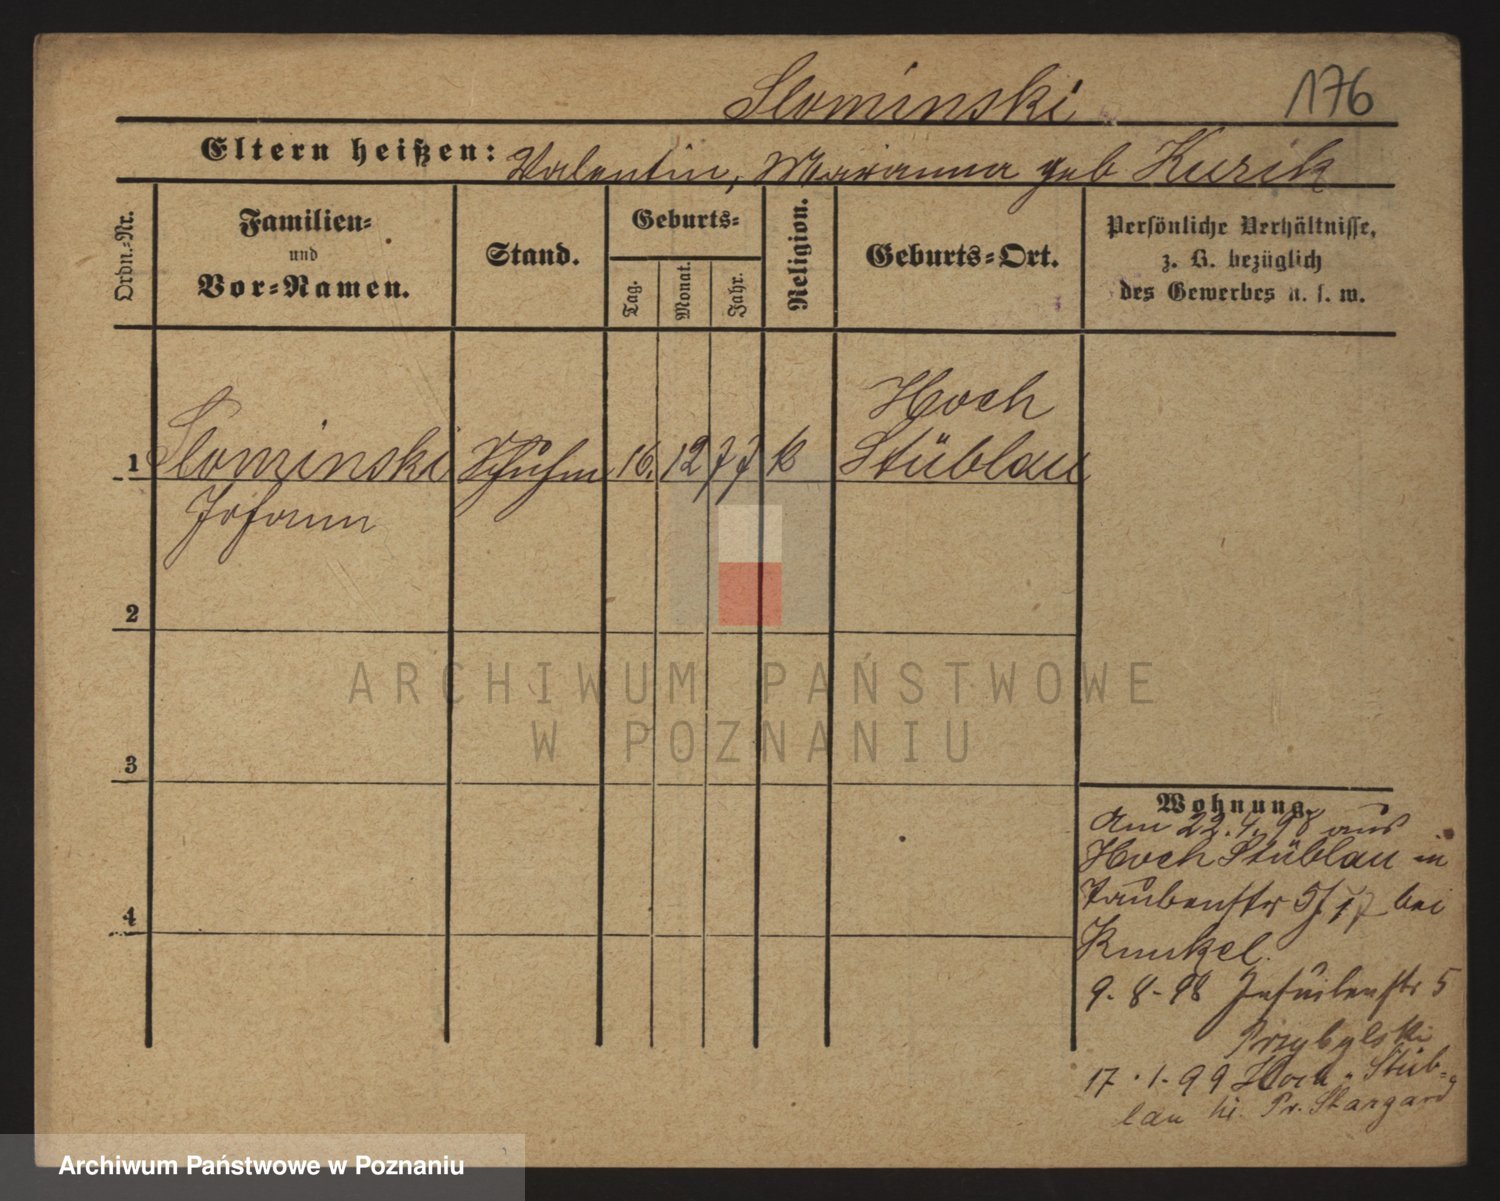 Slominski 176
Eltern heißen: Valentin, Marianna geb Kurik
Ordn.-Nr.
Familien- und Vor-Namen.
Stand.
Geburts-
Tag.
Monat.
Jahr.
Religion.
Geburts-Ort.
Persönliche Verhältnisse,
z. B. bezüglich
des Gewerbes u. s. w.
1 Slominski Schuhm 16. 12 77 k Hoch
Stüblau
Johann
2
3
4
Wohnung.
Am 22.4.98 aus
Hoch Stüblau in
Taubenstr 17 bei
Kunkel.
9.8-98 Jesuitenstr 5
Przybylski
17.1-99 Hoch-Stüb-
lau Pr. Stargard
ARCHIWUM PAŃSTWOWE
W POZNANIU
Archiwum Państwowe w Poznaniu